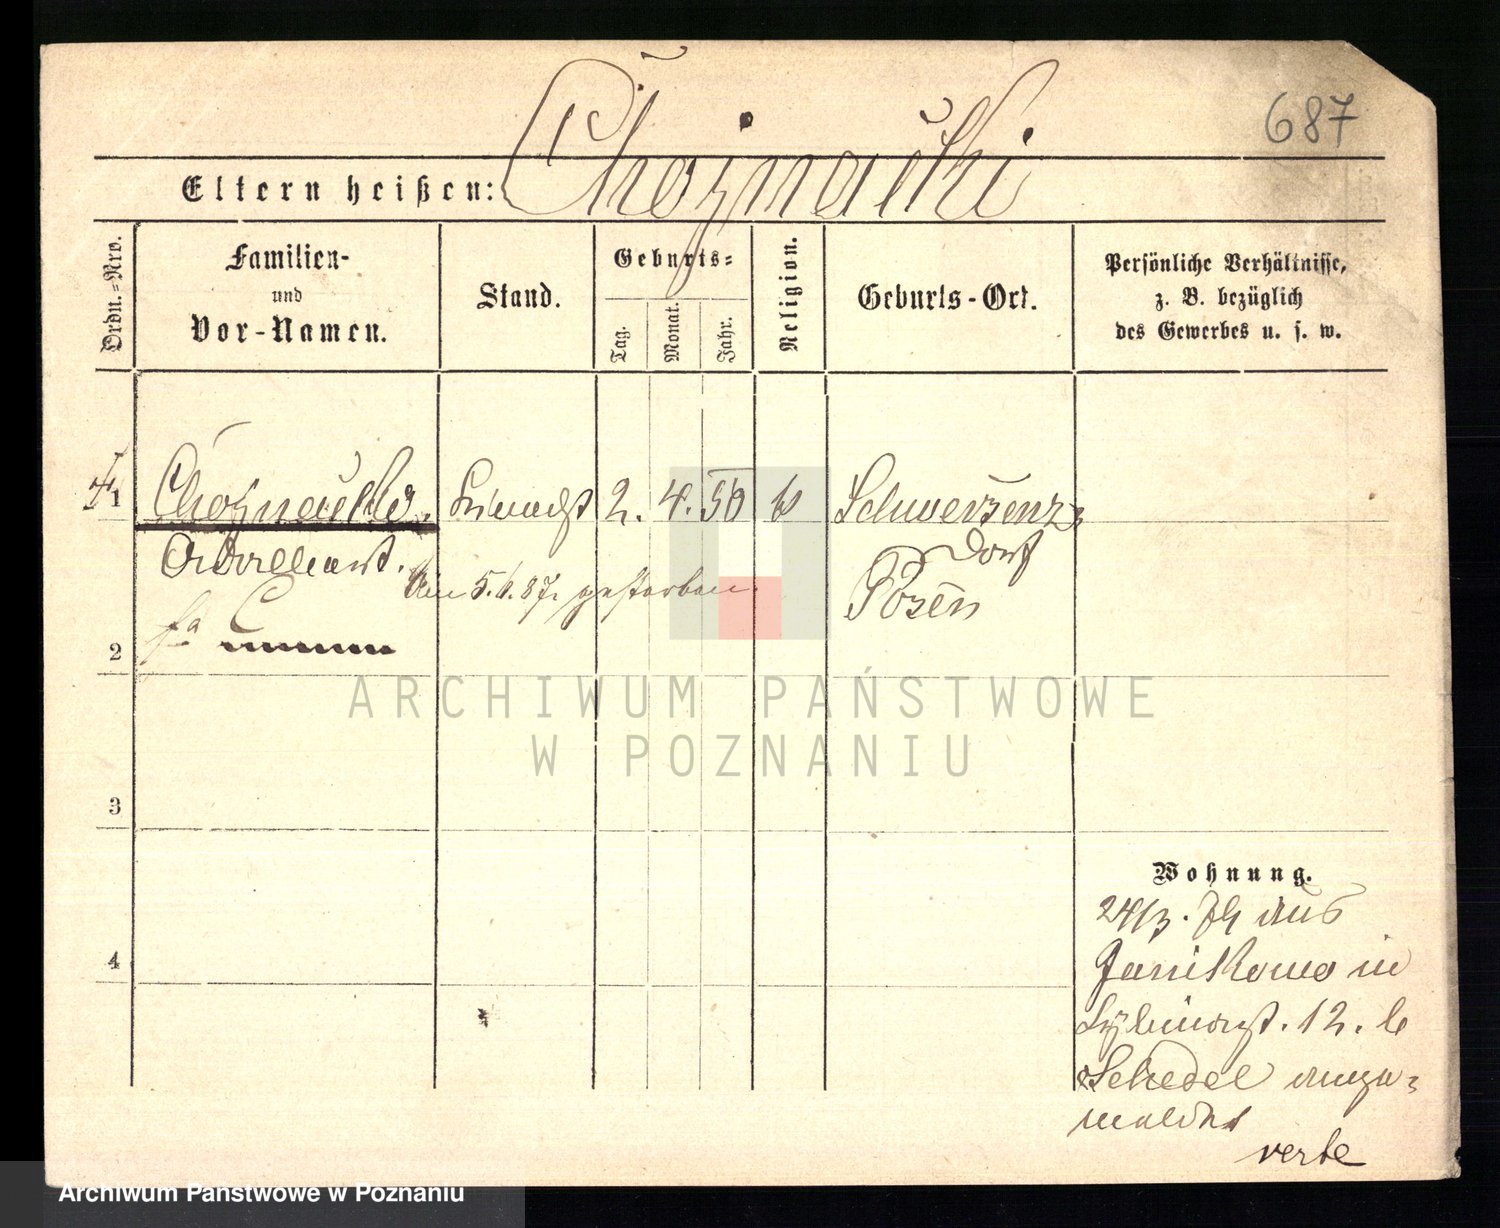 687
Eltern heißen: Chojnacki
Ordn.-Nro.
Familien-
und
Vor-Namen.
Stand.
Geburts-
Tag.
Monat.
Jahr.
Religion.
Geburts-Ort.
Persönliche Verhältnisse,
z. B. bezüglich
des Gewerbes u. s. w.
1
Chojnacki 2. 4. 50 Schwersenz
Dorf
Adalbert.
Am 5. 1. 87. gestorben.
Posen
2
ARCHIWUM PAŃSTWOWE
W POZNANIU
3
Wohnung.
24/3. 74 aus
4
Janikowo in
12. b
Schedel ange-
meldet
verte
Archiwum Państwowe w Poznaniu